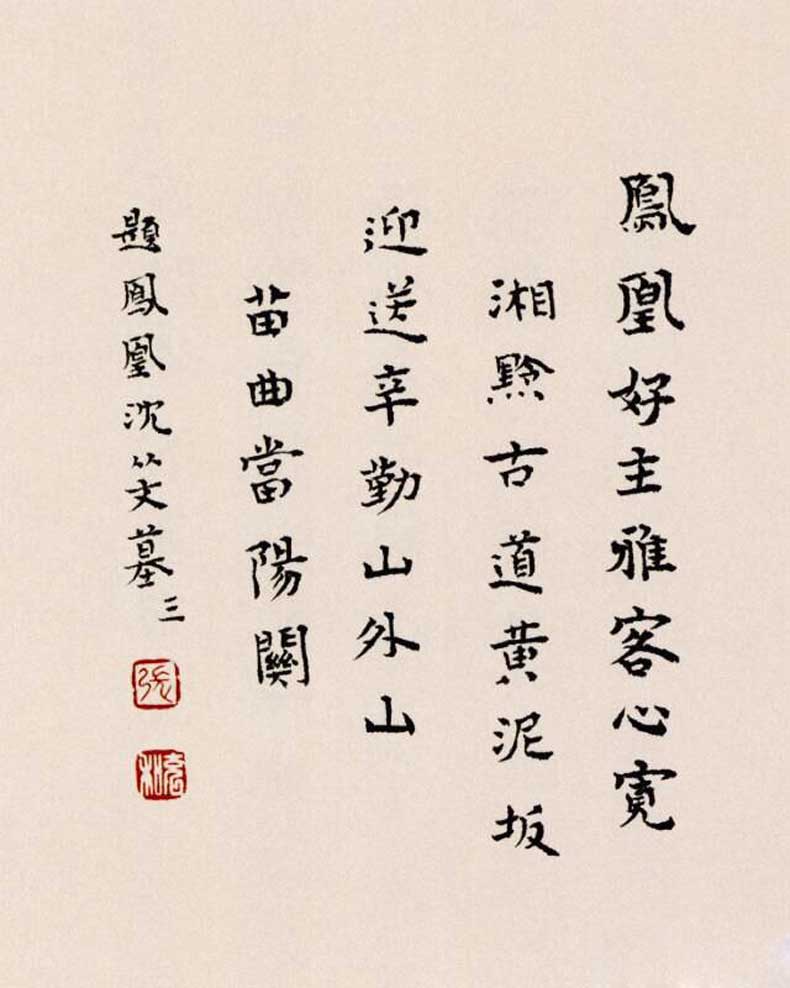 鳳凰好主雅客心寬
湘黔古道黄泥坂
迎送辛勤山外山
苗曲當陽關
題鳳凰沈從文墓三
張
充和